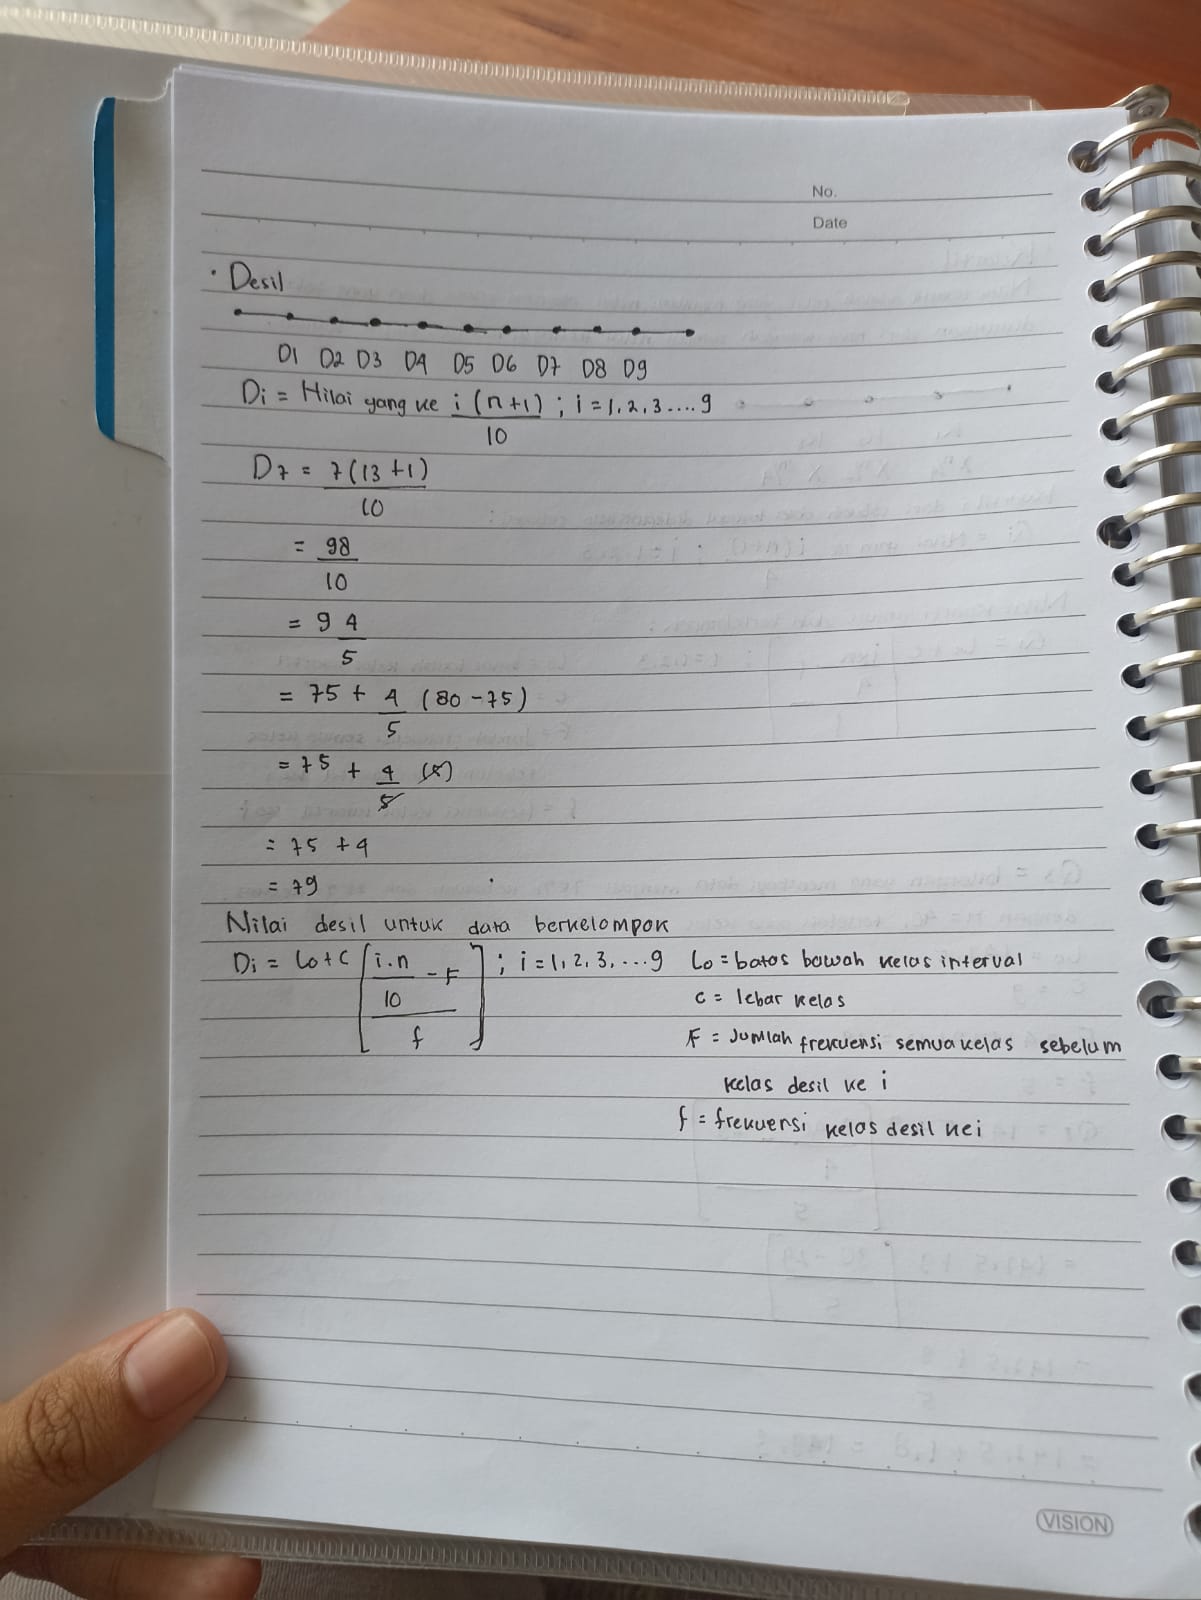 No.
Date
• Desil
D1 D2 D3 D4 D5 D6 D7 D8 D9
Di = Hilai yang ke i (n+1) ; i = 1, 2, 3 .... 9
10
D7 = 7 (13 + 1)
10
= 98
10
= 9 4
5
= 75 + 4 (80 - 75)
5
= 75 + 4 (5)
5
= 75 + 4
= 79
Nilai desil untuk data berkelompok
Di = Lo + C [ i.n - F ] ; i = 1, 2, 3, ... 9 Lo = batas bawah kelas interval
10
f
c = lebar kelas
F = Jumlah frekuensi semua kelas sebelum
kelas desil ke i
f = frekuensi kelas desil kei
VISION